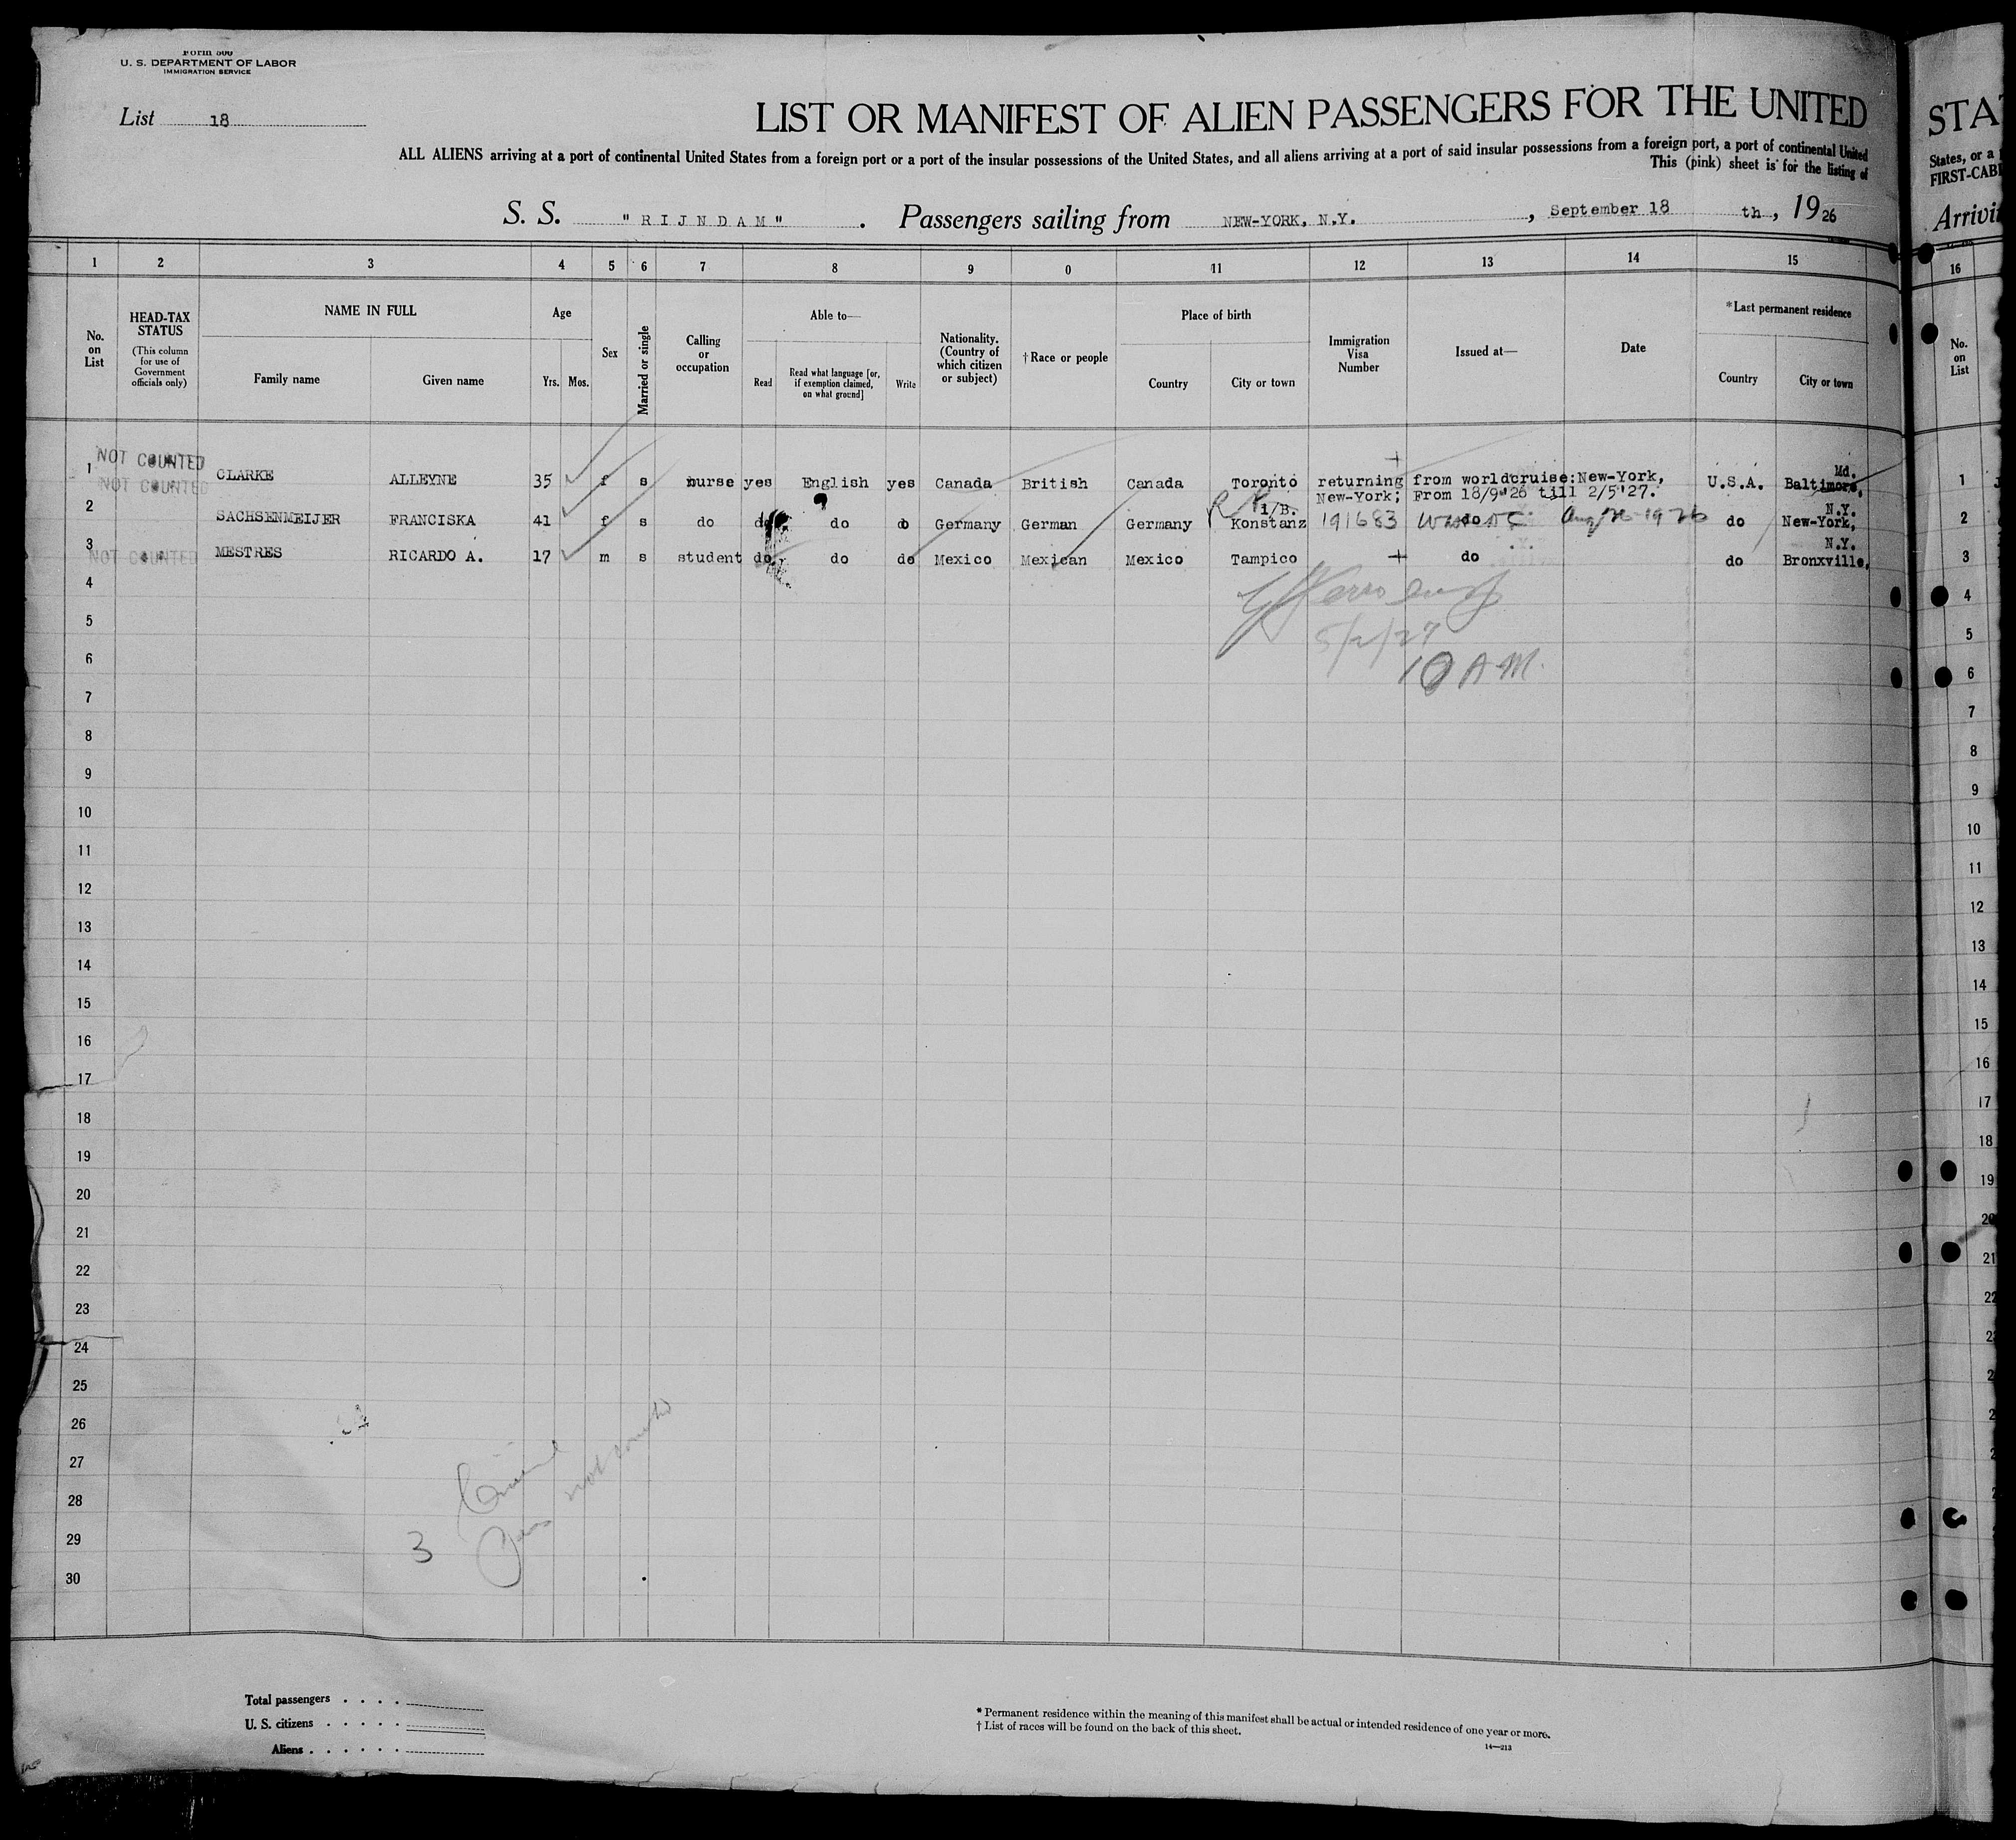 Form 500
U. S. DEPARTMENT OF LABOR
IMMIGRATION SERVICE
List 18
LIST OR MANIFEST OF ALIEN PASSENGERS FOR THE UNITED
STA
ALL ALIENS arriving at a port of continental United States from a foreign port or a port of the insular possessions of the United States, and all aliens arriving at a port of said insular possessions from a foreign port, a port of continental United
States, or a
This (pink) sheet is for the listing of
FIRST-CABI
S. S. "RIJNDAM". Passengers sailing from NEW-YORK, N.Y., September 18 th, 1926
Arrivi
1 2 3 4 5 6 7 8 9 0 11 12 13 14 15 16
No. on List
HEAD-TAX STATUS
(This column for use of Government officials only)
NAME IN FULL
Family name Given name
Age
Yrs. Mos.
Sex
Married or single
Calling or occupation
Able to—
Read
Read what language [or, if exemption claimed, on what ground]
Write
Nationality. (Country of which citizen or subject)
†Race or people
Place of birth
Country City or town
Immigration Visa Number
Issued at—
Date
*Last permanent residence
Country City or town
No. on List
NOT COUNTED
1 CLARKE ALLEYNE 35 f s nurse yes English yes Canada British Canada Toronto returning from worldcruise: New-York, U.S.A. Md. Baltimore, 1
NOT COUNTED
New-York; From 18/9'26 till 2/5'27.
2 SACHSENMEIJER FRANCISKA 41 f s do do do do Germany German Germany Konstanz i/B. 191683 do 1926 do N.Y. New-York, 2
3 NOT COUNTED MESTRES RICARDO A. 17 m s student do do do Mexico Mexican Mexico Tampico do do N.Y. Bronxville, 3
4 4
5 5
6 6
5/2/27
10 A.M.
7 7
8 8
9 9
10 10
11 11
12 12
13 13
14 14
15 15
16 16
17 17
18 18
19 19
20 20
21 21
22 22
23
24
25
26
27
28
29
30
not counted
3
Total passengers . . . .
U. S. citizens . . . . .
Aliens . . . . . .
* Permanent residence within the meaning of this manifest shall be actual or intended residence of one year or more.
† List of races will be found on the back of this sheet.
14—213